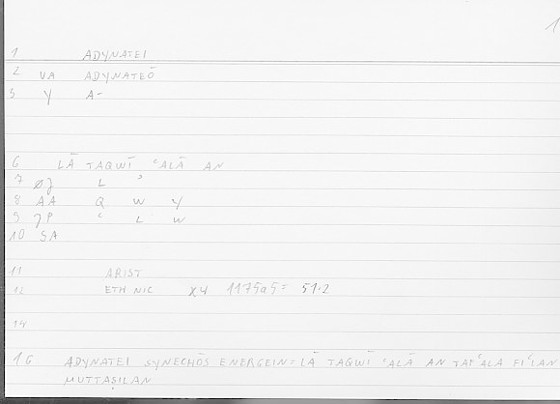 1
1 ADYNATEI
2 VA ADYNATEŌ
5 Y A-
6 LĀ TAQWĪ ʿALĀ AN
7 ØJ L ʾ
8 AA Q W Y
9 JP ʿ L W
10 SA
11 ARIST
12 ETH NIC X4 1175a5= 51.2
14
16 ADYNATEI SYNECHŌS ENERGEIN=LĀ TAQWĪ ʿALĀ AN TAFʿALA FIʿLAN
MUTTAṢILAN